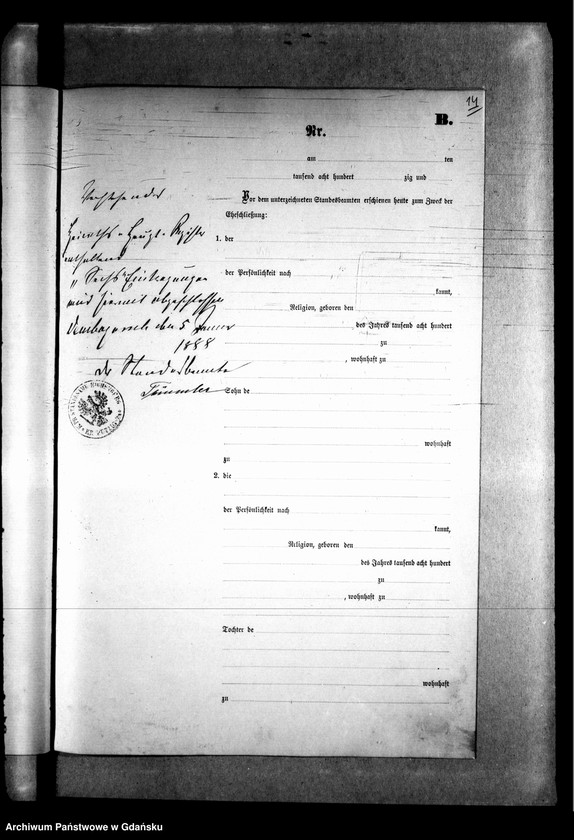 14
B.
Nr.
am ten
tausend acht hundert zig und
Vor dem unterzeichneten Standesbeamten erschienen heute zum Zweck der
Eheschließung:
1. der
der Persönlichkeit nach
kannt,
Religion, geboren den
des Jahres tausend acht hundert
zu
, wohnhaft zu
Sohn de
wohnhaft
zu
2. die
der Persönlichkeit nach
kannt,
Religion, geboren den
des Jahres tausend acht hundert
zu
, wohnhaft zu
Tochter de
wohnhaft
zu
Vorstehendes
Heiraths-Haupt-Register
enthaltend
"Sechs" Eintragungen
wird hiermit abgeschlossen
den 5 Januar
1888
Der Standesbeamte
Archiwum Państwowe w Gdańsku